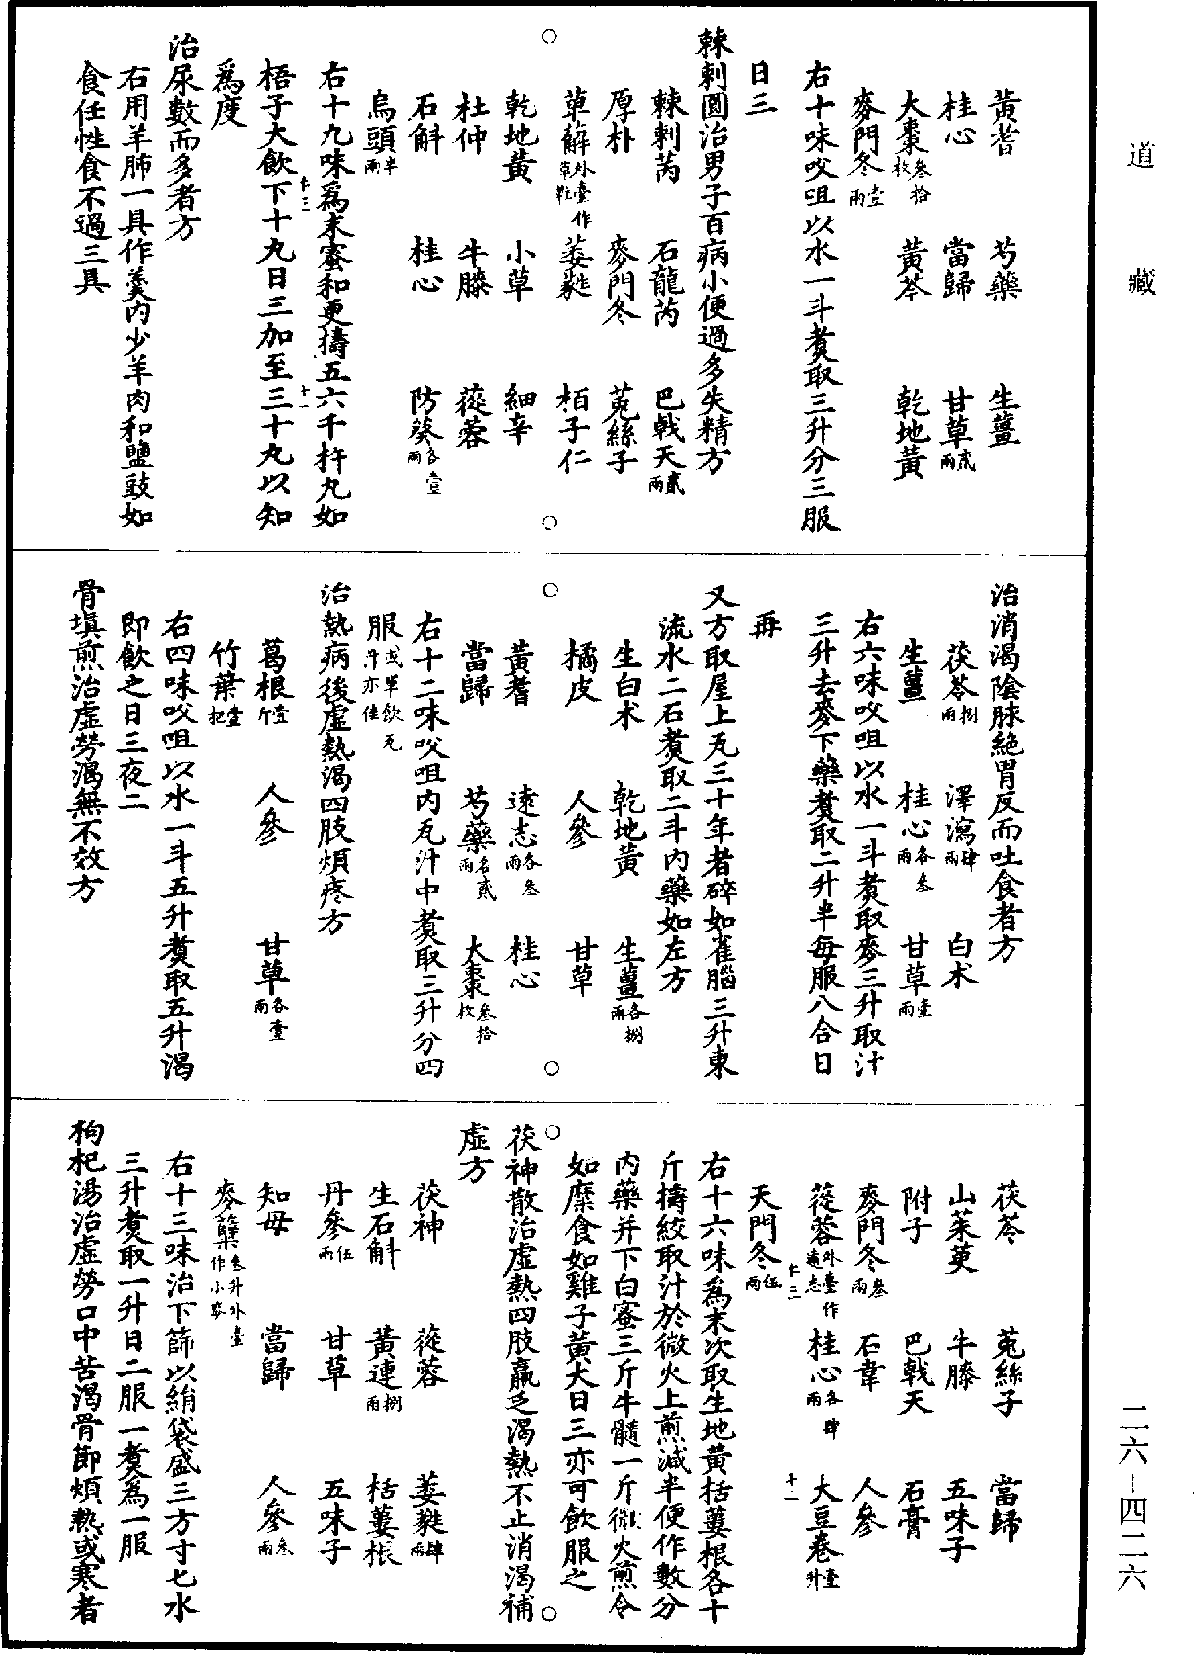 道藏
黃耆 芍藥 生薑
桂心 當歸 甘草貳兩
大棗叁拾枚 黃芩 乾地黃
麥門冬壹兩
右十味㕮咀以水一斗煑取三升分三服
日三
棘刺圓治男子百病小便過多失精方
棘刺芮 石龍芮 巴戟天貳兩
厚朴 麥門冬 菟絲子
萆薢外臺作草鞋 萎蕤 栢子仁
乾地黃 小草 細辛
杜仲 牛膝 蓯蓉
石斛 桂心 防葵各壹兩
烏頭半兩
右十九味爲末蜜和更擣五六千杵丸如
梧子大飲下十丸日三加至三十丸以知
爲度
治尿數而多者方
右用羊肺一具作羹内少羊肉和鹽豉如
食任性食不過三具
治消渴陰脉絶胃反而吐食者方
茯苓捌兩 澤瀉肆兩 白术
生薑 桂心各叁兩 甘草壹兩
右六味㕮咀以水一斗煑取麥三升取汁
三升去麥下藥煑取二升半每服八合日
再
又方取屋上瓦三十年者碎如雀腦三升東
流水二石煑取二斗内藥如左方
生白术 乾地黃 生薑各捌兩
橘皮 人參 甘草
黃耆 遠志各叁兩 桂心
當歸 芍藥各貳兩 大棗叁拾枚
右十二味㕮咀内瓦汁中煑取三升分四
服或單飲瓦汁亦佳
治熱病後虛熱渴四肢煩疼方
葛根壹斤 人參 甘草各壹兩
竹葉壹把
右四味㕮咀以水一斗五升煑取五升渴
即飲之日三夜二
骨塡煎治虛勞渴無不效方
茯苓 菟絲子 當歸
山茱萸 牛膝 五味子
附子 巴戟天 石膏
麥門冬叁兩 石韋 人參
蓯蓉外臺作遠志 桂心各肆兩 大豆卷壹升
天門冬伍兩
右十六味爲末次取生地黃栝蔞根各十
斤擣絞取汁於微火上煎減半便作數分
内藥并下白蜜三斤牛髓一斤微火煎令
如糜食如雞子黃大日三亦可飲服之
茯神散治虛熱四肢羸乏渴熱不止消渴補
虛方
茯神 蓯蓉 萎蕤肆兩
生石斛 黃連捌兩 栝蔞根
丹參伍兩 甘草 五味子
知母 當歸 人參叁兩
麥蘖叁升外臺作小麥
右十三味治下篩以絹袋盛三方寸匕水
三升煑取一升日二服一煑為一服
枸杞湯治虛勞口中苦渴骨節煩熱或寒者
二六—四二六